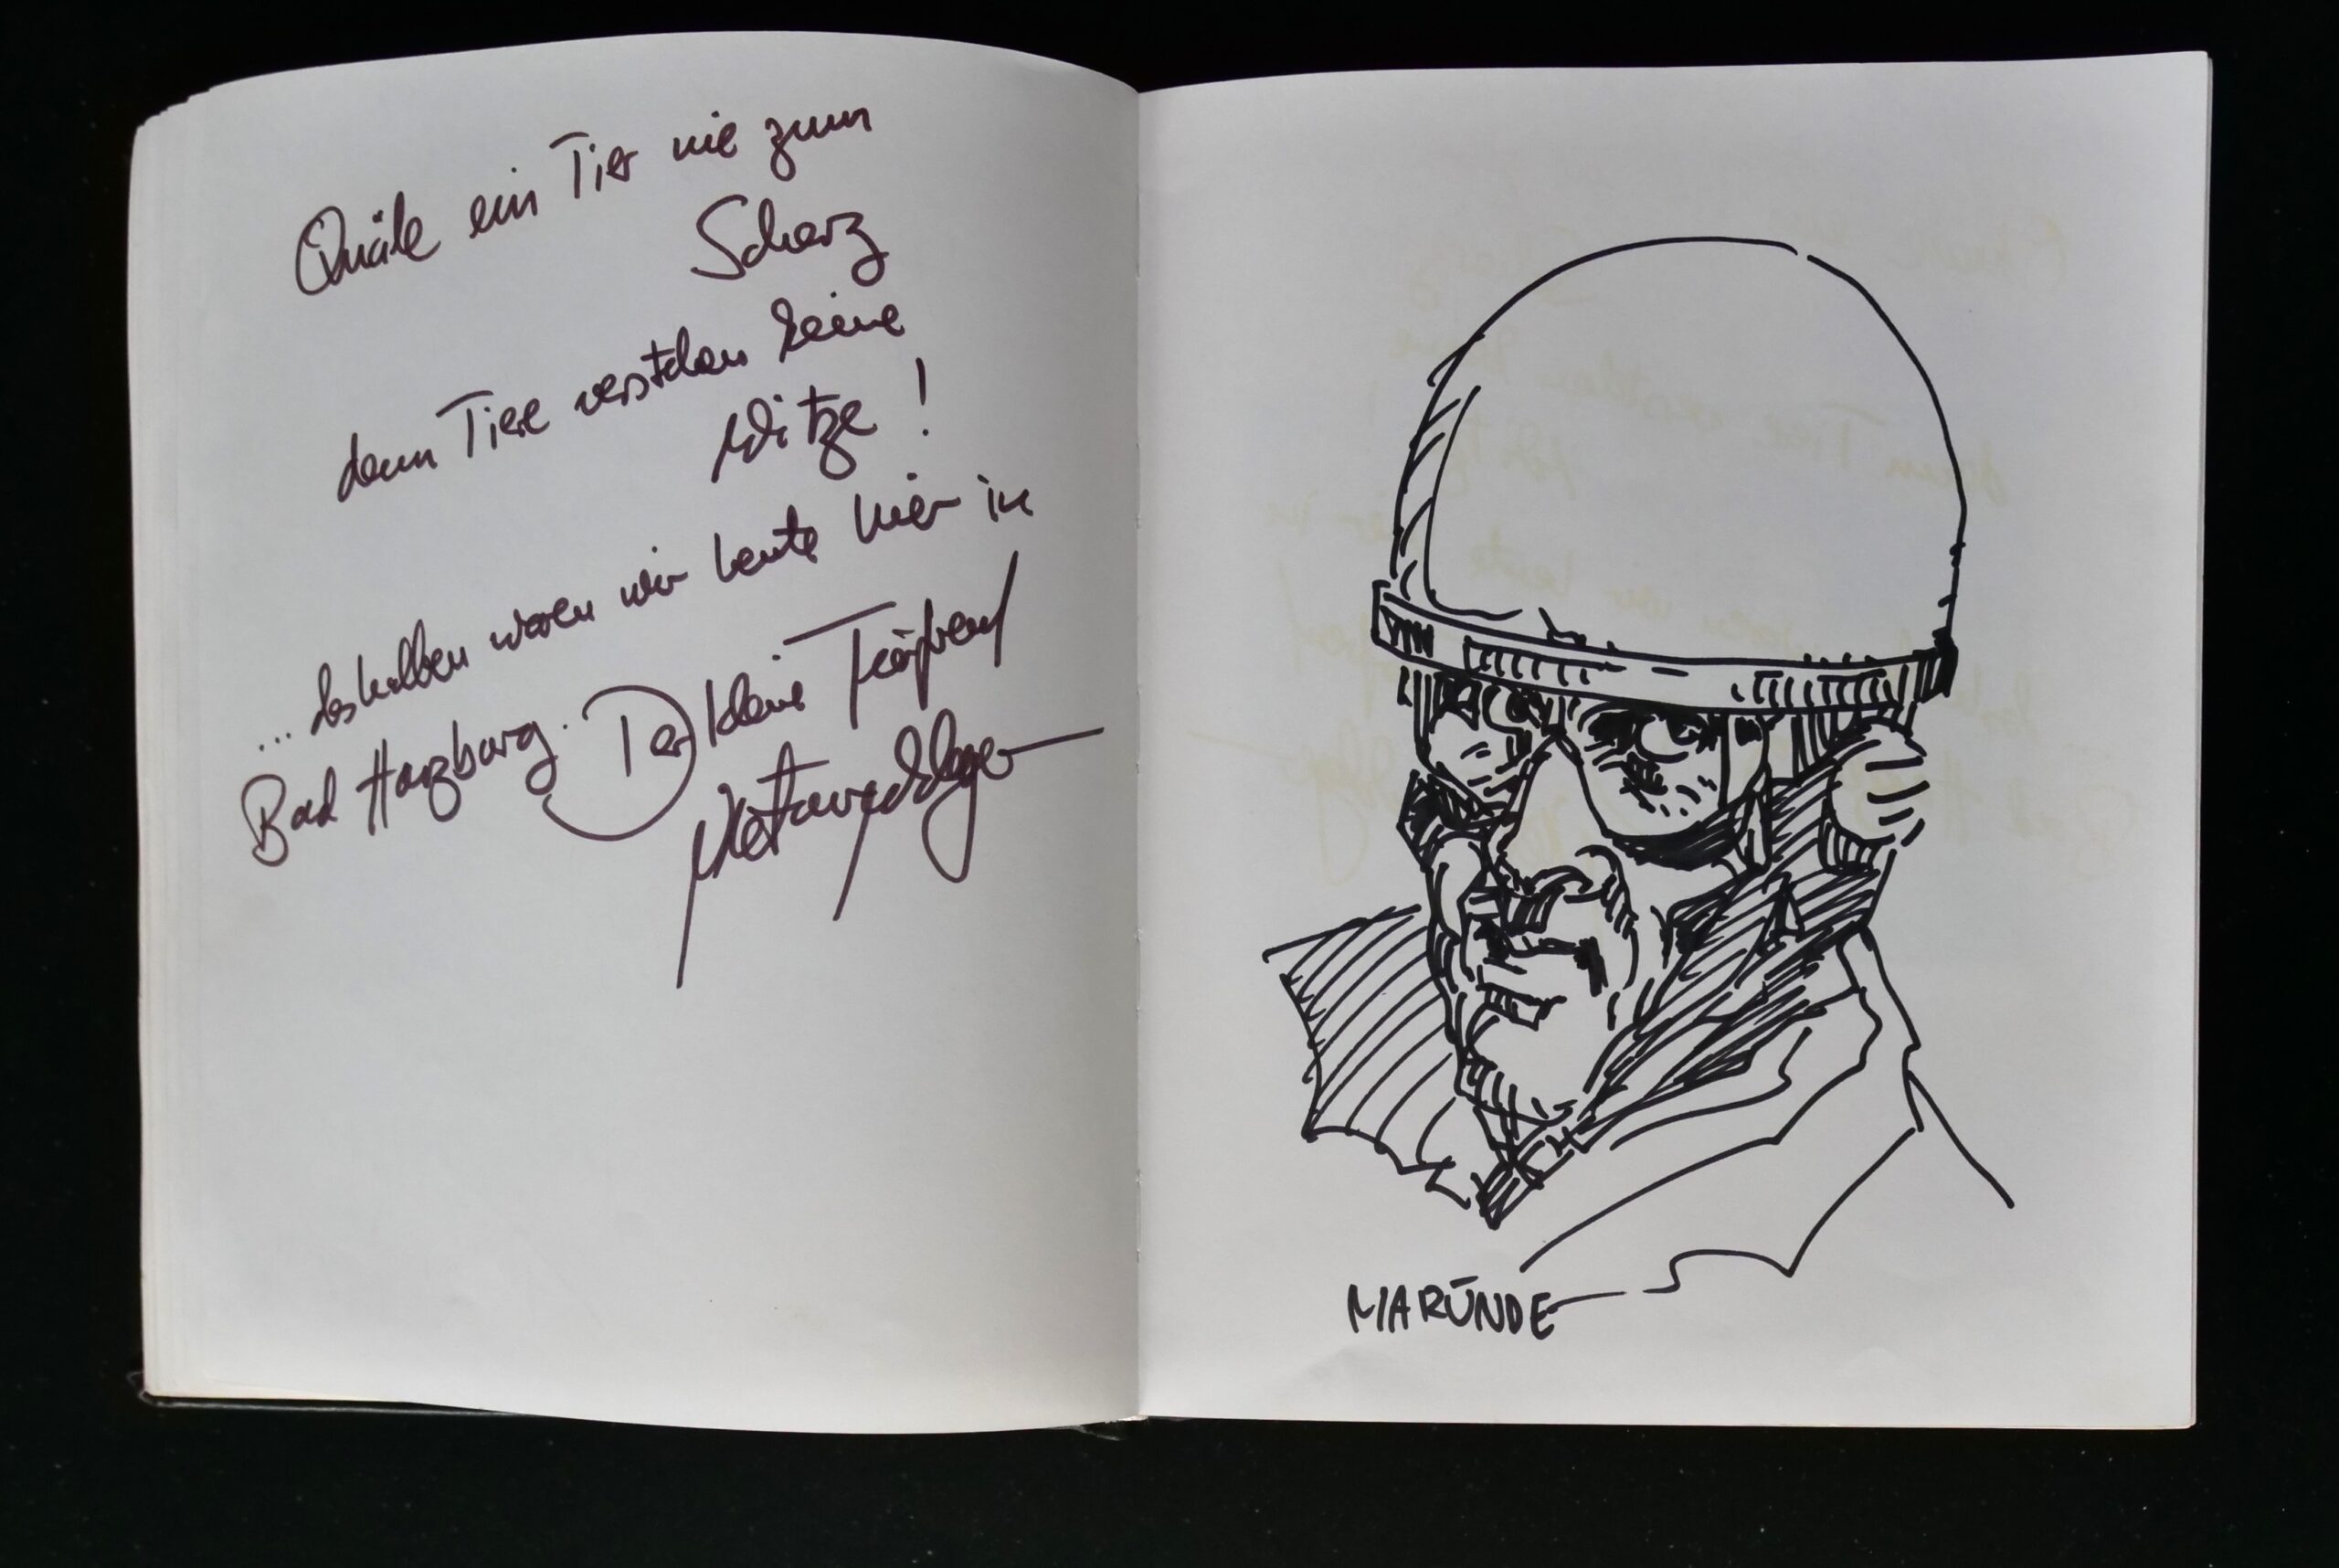 Quäle ein Tier nie zum
Scherz
denn Tiere verstehen keine
Witze !
... deshalben waren wir heute hier in
Bad Harzburg. Der kleine Tierfreund
MARUNDE